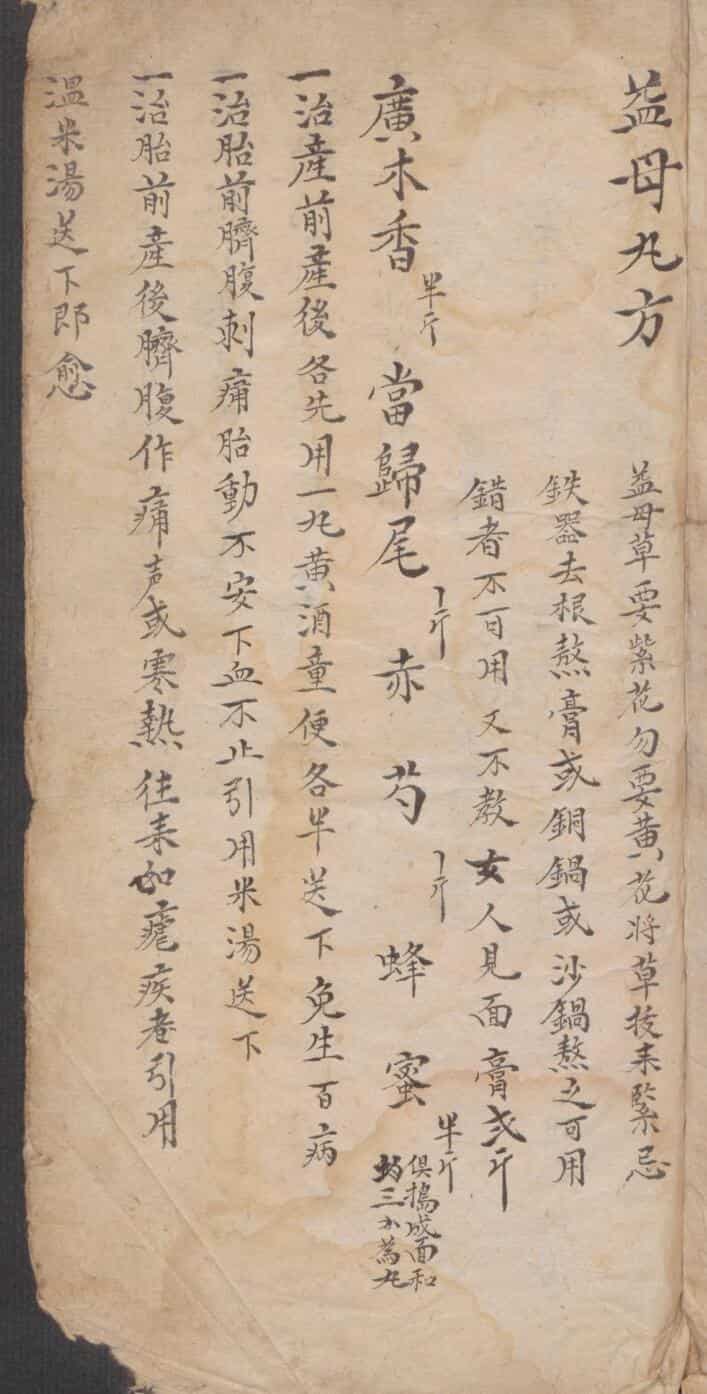 益母丸方
益母草要紫花勿要黄花將草拔来緊忌
鉄器去根熬膏或銅鍋或沙鍋熬之可用
錯者不可用又不教女人見面膏弍斤
廣木香半斤當歸尾丨斤赤芍丨斤蜂蜜半斤俱搗成面和
三小為丸
一治產前產後各先用一丸黄酒童便各半送下免生百病
一治胎前臍腹刺痛胎動不安下血不止引用米湯送下
一治胎前產後臍腹作痛声或寒熱往来如瘧疾者引用
温米湯送下即愈